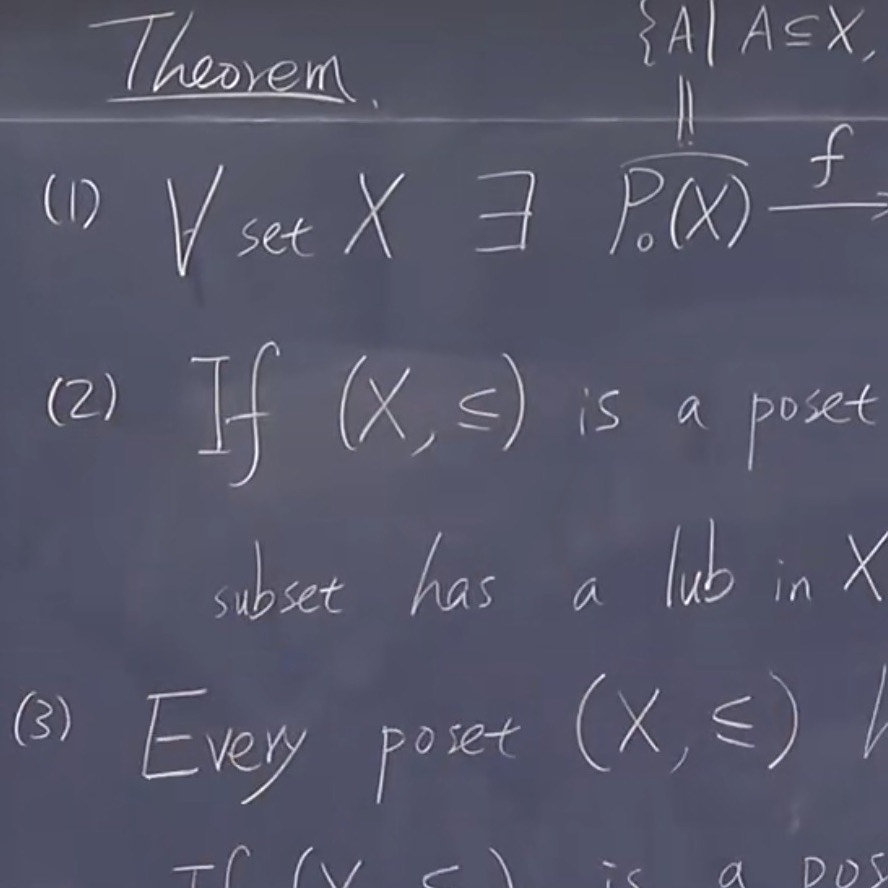 Theorem.
{A | A ⊆ X,
||
(1) ∀ set X ∃ P₀(X) →f
(2) If (X, ≤) is a poset
subset has a lub in X
(3) Every poset (X, ≤)
If (X ≤) is a pos